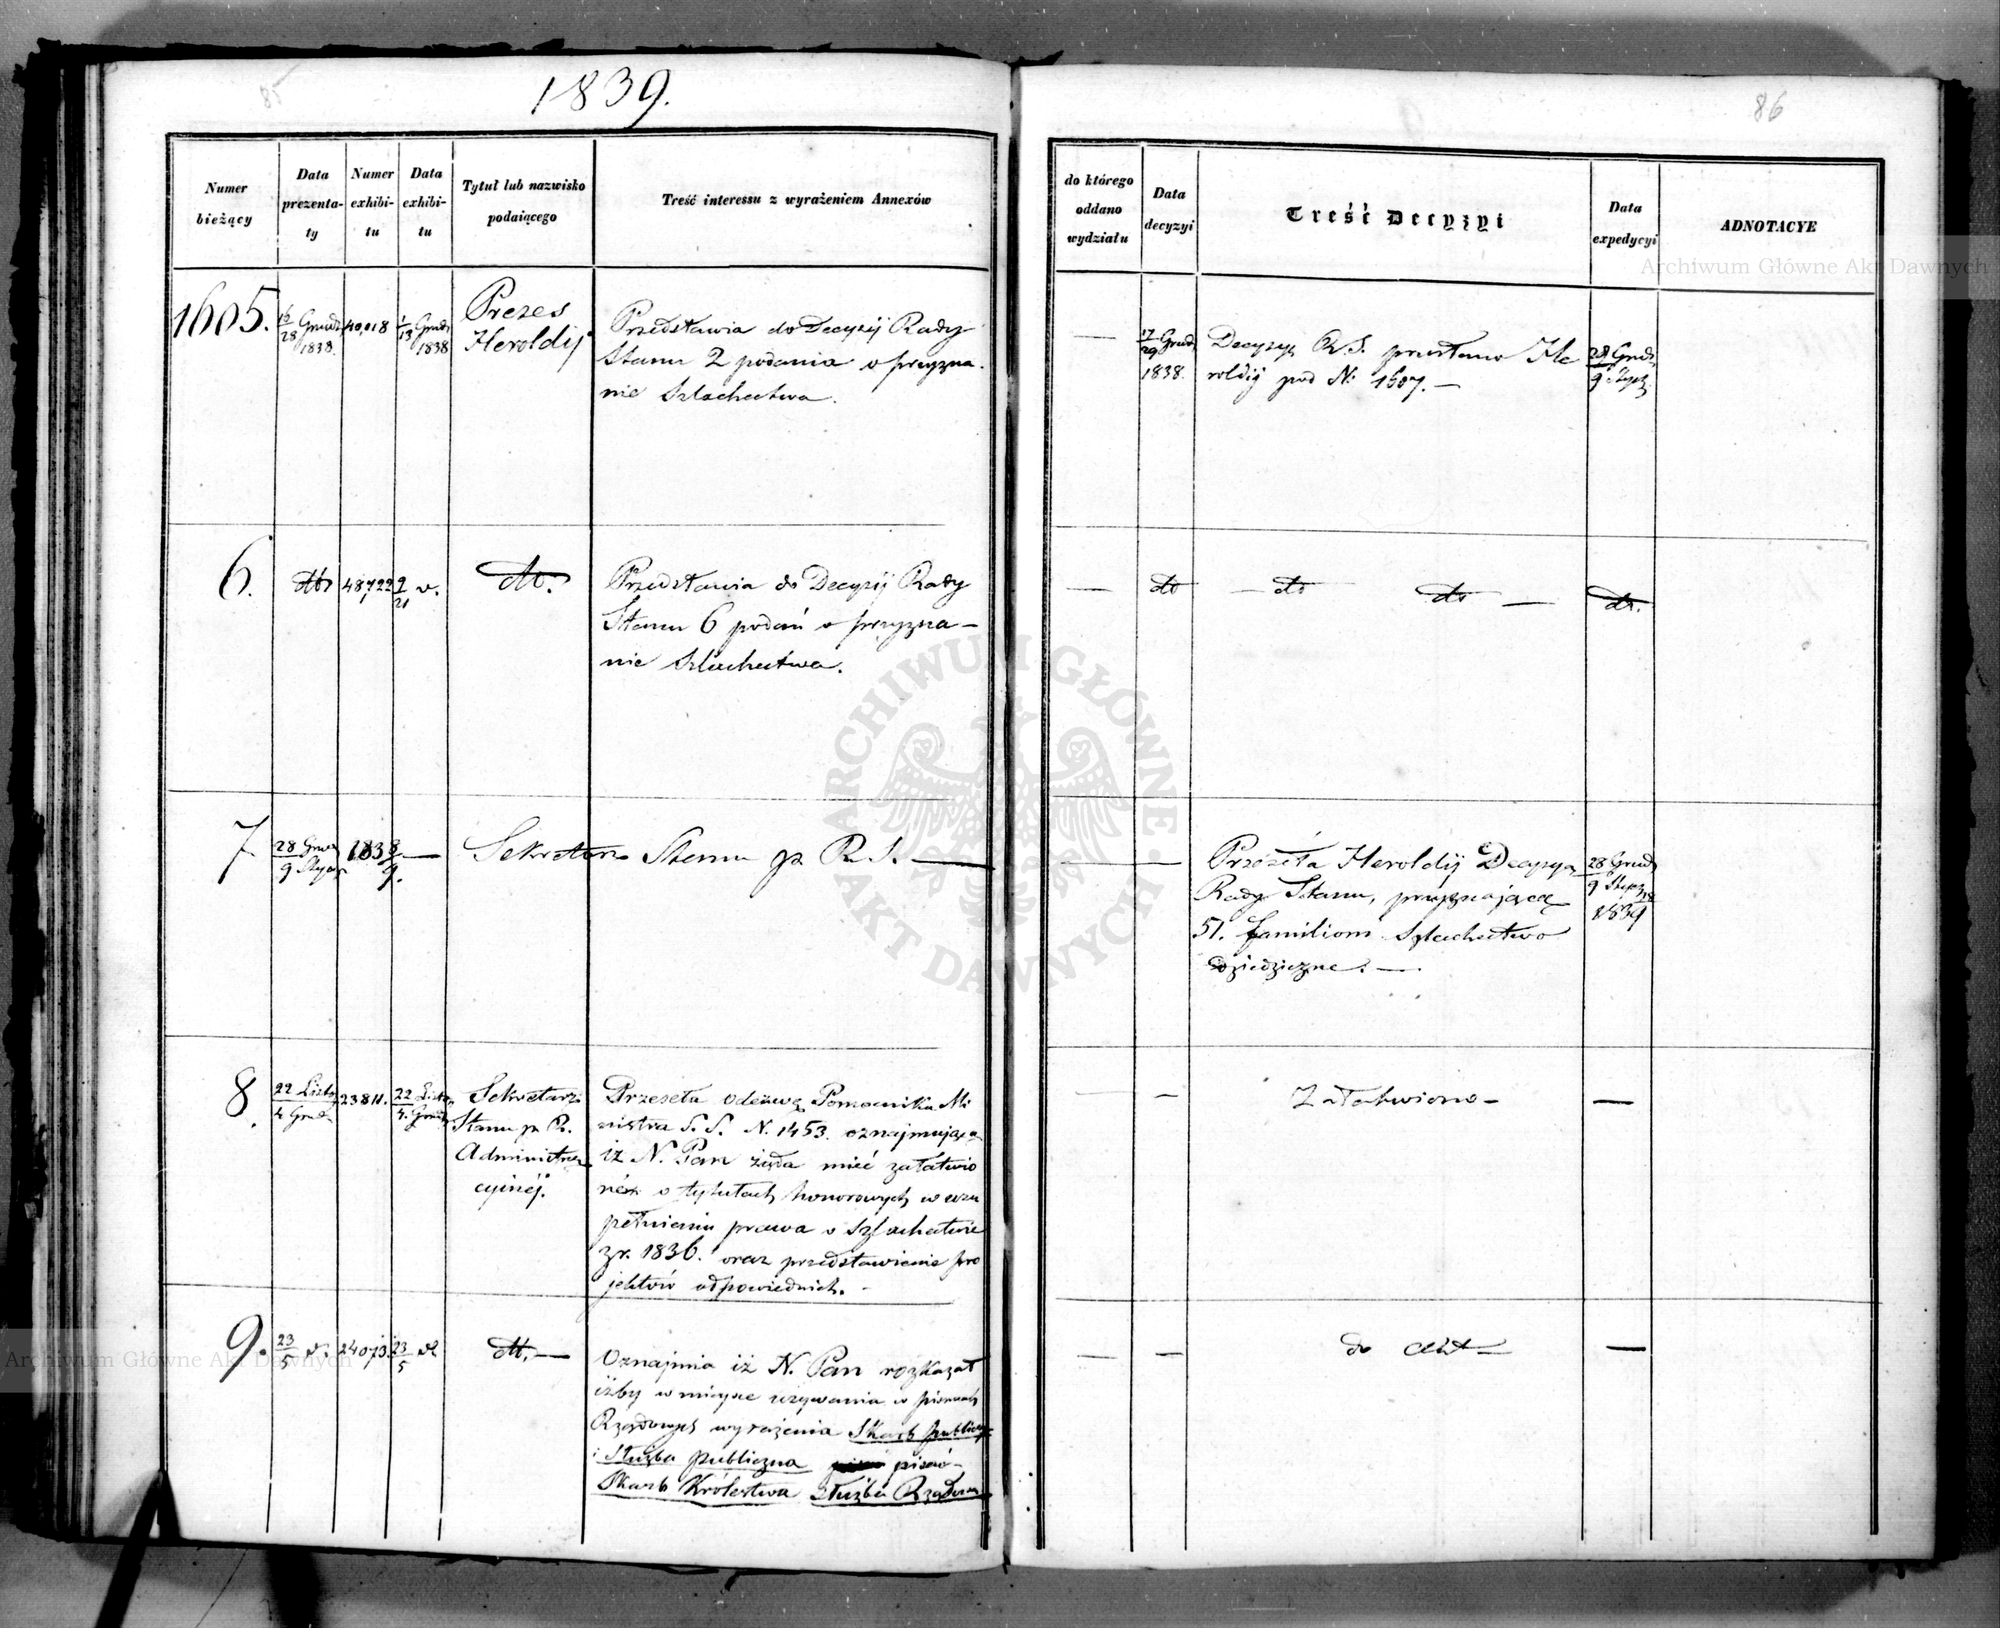 85
1839.
86
Numer bieżący
Data prezentaty
Numer exhibitu
Data exhibitu
Tytuł lub nazwisko podaiącego
Treść interessu z wyrażeniem Annexów
do którego oddano wydziału
Data decyzyi
Treść Decyzyi
Data expedycyi
ADNOTACYE
1605.
16/28 Grud. 1838.
40,018
1/13 Grud. 1838
Prezes
Heroldij
Przedstawia do Decyzij Rady
Stanu 2 podania o przyzna-
nie Szlachectwa.
—
17/29 Grud. 1838.
Decyzyę R. S. przesłano He
roldij pod N. 1607. —
28 Grud. / 9 Stycz.
6.
dto
48,722
9/21 d.
dto.
Przedstawia do Decyzij Rady
Stanu 6 podań o przyzna-
nie Szlachectwa.
—
do
— do do —
do.
7
28 Grud / 9 Stycz
183 8/9. —
Sekretarz Stanu p. R. S. —
Przesyła Heroldij Decyzyą
Rady Stanu, przyznającą
51. familiom Szlachectwo
dziedziczne. —
28 Grud. / 9 Stycz. 1838/1839
8.
22 Listop. / 4 Grud.
23811.
22 Listop. / 4. Grud.
Sekretarz
Stanu p. R.
Administra
cyinéj.
Przeseła odezwę Pomocnika Mi
nistra S. S. N. 1453. oznajmującą
iż N. Pan żąda mieć załatwio
ne o tytułach honorowych w uzu
pełnieniu prawa o Szlachectwie
z r. 1836. oraz przedstawienie pro
jektów odpowiednich. —
— —
Załatwiono —
—
9.
23/5 d.
24073.
23/5 d
dto. —
Oznajmia iż N. Pan rozkazał
iżby w miejsce używania w pismach
Rządowych wyrażenia Skarb publiczny
i Służba publiczna pisać —
Skarb Królestwa Służba Rządowa
— —
do akt —
—
Archiwum Główne Akt Dawnych
ARCHIWUM GŁÓWNE AKT DAWNYCH
Archiwum Główne Akt Dawnych